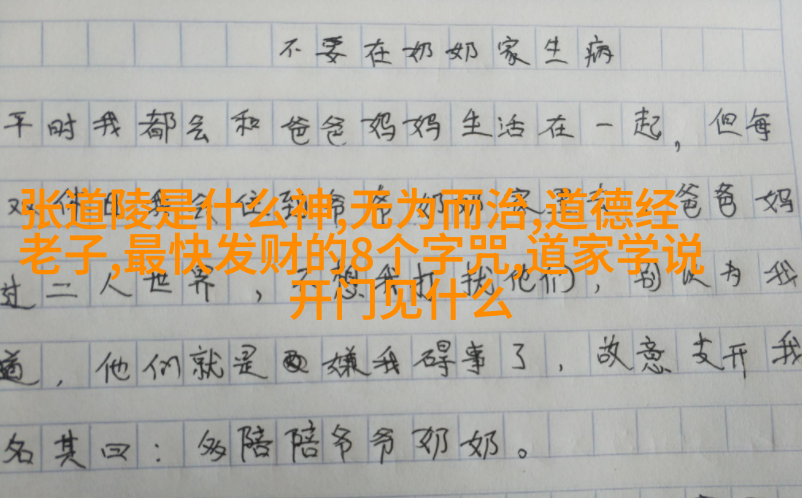 不要在奶奶家生病
平时我都会和爸爸妈妈生活在一起，但每
张道陵是什么神,无为而治,道德经
爸爸妈
老子,最快发财的8个字咒,道家学说
过二人世界，不想我打扰他们，别以为我
开门见什么
道，他们就是嫌我碍事了，故意支开我
名其曰：多陪陪爷爷奶奶。